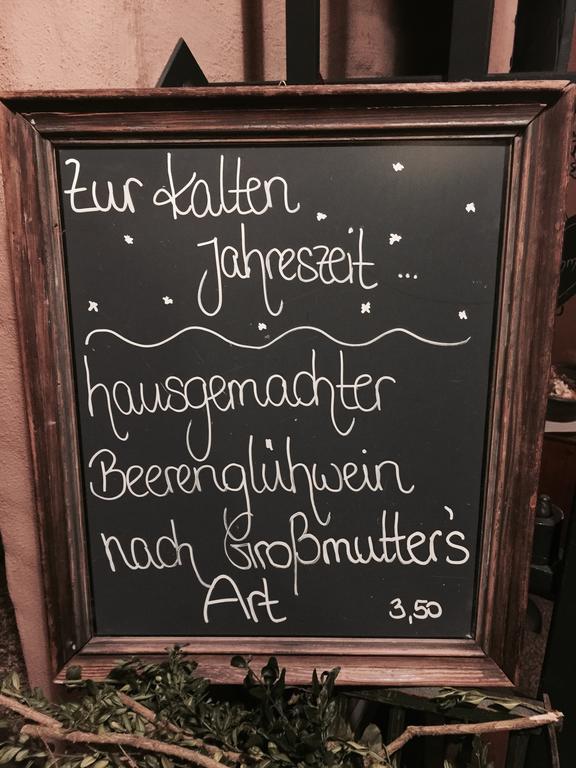 Zur Kalten
Jahreszeit ...
hausgemachter
Beerenglühwein
nach Großmutter's
Art 3,50